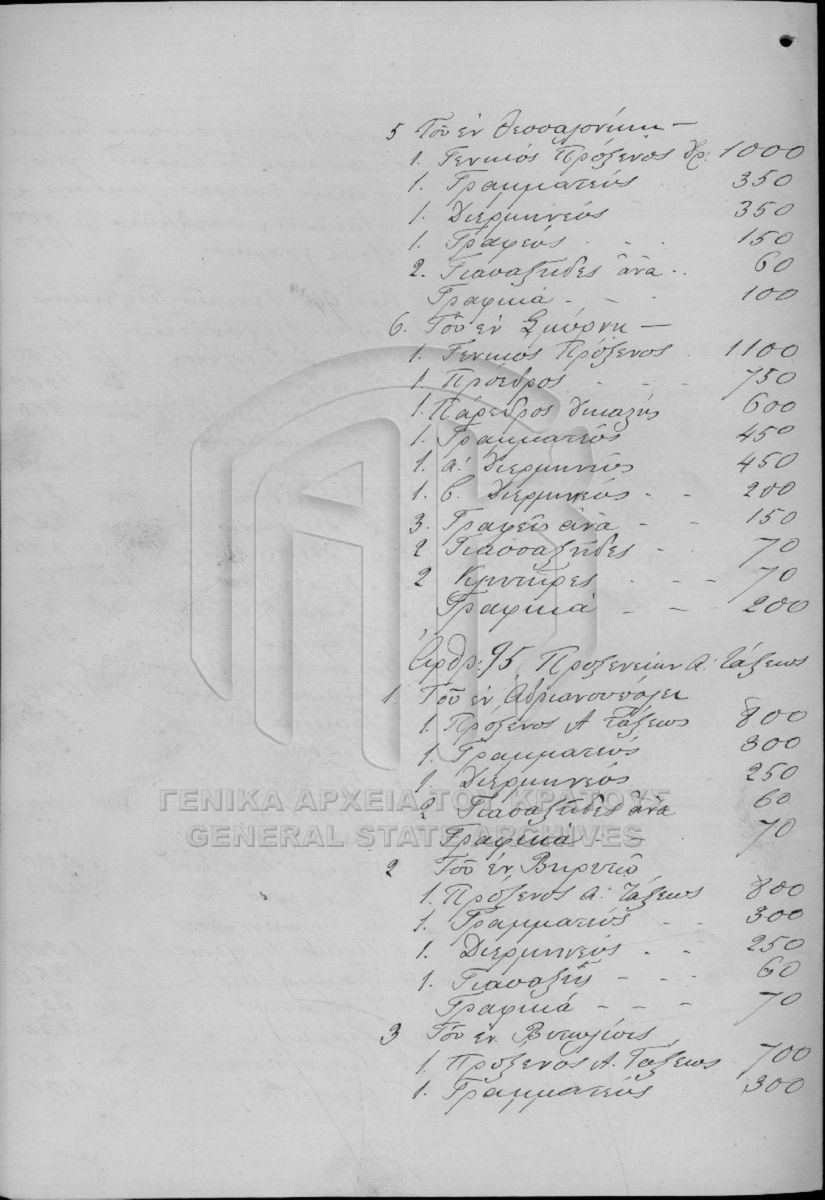 5 Τοῦ ἐν Θεσσαλονίκῃ —
1. Γενικὸς Πρόξενος Δρ: 1000
1. Γραμματεύς . 350
1. Διερμηνεύς 350
1. Γραφεύς . - . 150
2. Γιασαξῆδες ἀνὰ .. 60
Γραφικά - - . 100
6. Τοῦ ἐν Σμύρνῃ —
1. Γενικὸς Πρόξενος . 1100
1. Πρόεδρος - - - 750
1. Πάρεδρος δικαστὴς 600
1. Γραμματεύς 450
1. α: Διερμηνεύς 450
1. β. Διερμηνεύς - - 200
3. Γραφεῖς ἀνὰ - - 150
2 Γιασσαξῆδες - . 70
2 Κλητῆρες . - - - 70
Γραφικά - - - 200
Ἄρθρ: 95 Προξενείων Α: Τάξεως
1. Τοῦ ἐν Ἀδριανουπόλει
1. Πρόξενος Α Τάξεως 800
1. Γραμματεύς 300
1. Διερμηνεύς 250
2 Γιασαξῆδες ἀνὰ 60
Γραφικά - - . 70
ΓΕΝΙΚΑ ΑΡΧΕΙΑ ΤΟΥ ΚΡΑΤΟΥΣ
GENERAL STATE ARCHIVES
2 Τοῦ ἐν Βηρυτῷ
1. Πρόξενος Α: Τάξεως 800
1. Γραμματεύς - - 300
1. Διερμηνεύς . . 250
1. Γιασαξῆς - - - 60
Γραφικά - - - 70
3 Τοῦ ἐν Βιτωλίοις
1. Πρόξενος Α. Τάξεως . 700
1. Γραμματεύς 300